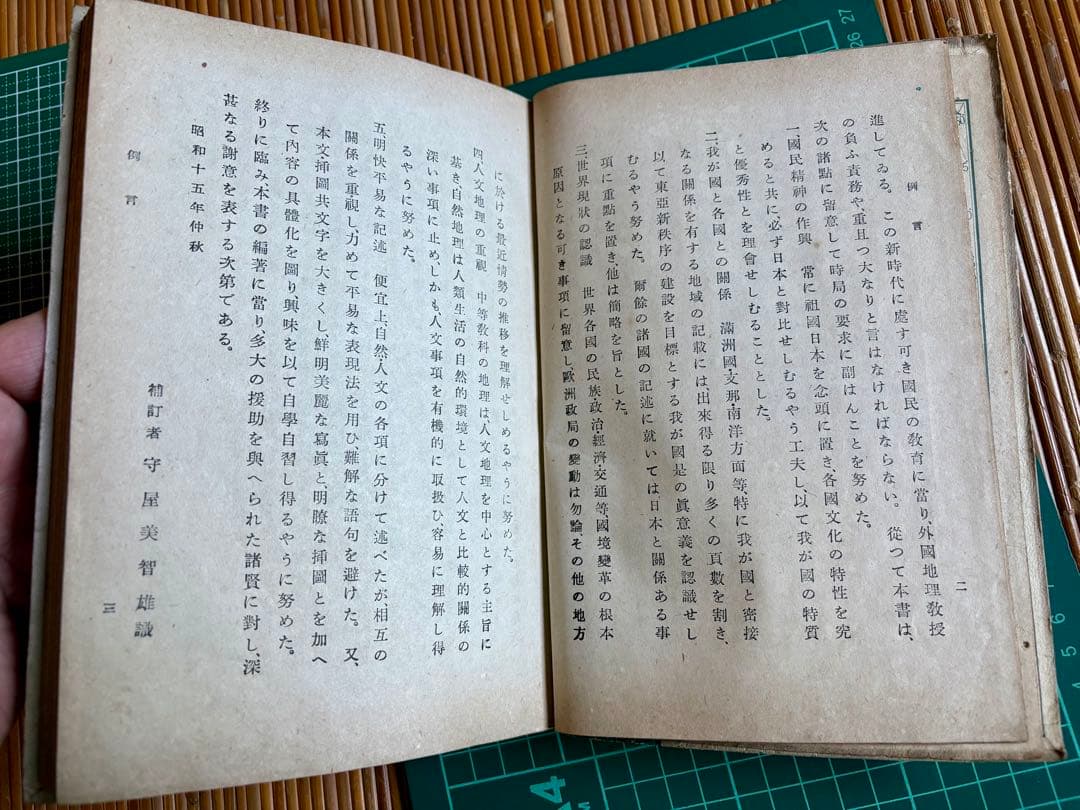 例言
二
進してゐる。この新時代に處す可き國民の教育に當り、外國地理教授
の負ふ責務や、重且つ大なりと言はなければならない。從つて本書は、
次の諸點に留意して時局の要求に副はんことを努めた。
一、國民精神の作興　常に祖國日本を念頭に置き、各國文化の特性を究
めると共に必ず日本と對比せしむるやう工夫し、以て我が國の特質
と優秀性とを理會せしむることとした。
二、我が國と各國との關係　滿洲國・支那・南洋方面等、特に我が國と密接
なる關係を有する地域の記載には出來得る限り多くの頁數を割き、
以て東亞新秩序の建設を目標とする我が國是の眞意義を認識せし
むるやう努めた。爾餘の諸國の記述に就いては日本と關係ある事
項に重點を置き、他は簡略を旨とした。
三、世界現狀の認識　世界各國の民族・政治・經濟・交通等、國境變革の根本
原因となる可き事項に留意し、歐洲政局の變動は勿論、その他の地方
に於ける最近情勢の推移を理解せしめるやうに努めた。
四、人文地理の重視　中等教科の地理は人文地理を中心とする主旨に
基き自然地理は人類生活の自然的環境として人文と比較的關係の
深い事項に止め、しかも人文事項を有機的に取扱ひ、容易に理解し得
るやうに努めた。
五、明快平易な記述　便宜上、自然・人文の各項に分けて述べたが、相互の
關係を重視し、力めて平易な表現法を用ひ、難解な語句を避けた。又、
本文・挿圖共文字を大きくし鮮明美麗な寫眞と、明瞭な挿圖とを加へ
て內容の具體化を圖り、興味を以て自學自習し得るやうに努めた。
終りに臨み本書の編著に當り、多大の援助を與へられた諸賢に對し、深
甚なる謝意を表する次第である。
昭和十五年仲秋
補訂者　守屋美智雄識
例言
三
27
26
6
5
4
4